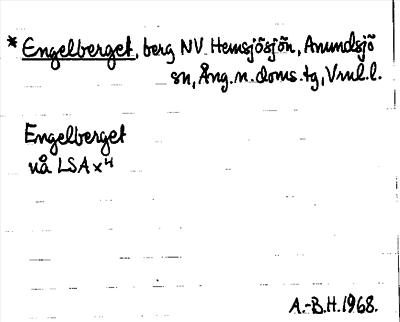 * Engelberget, berg NV Hemsjösjön, Anundsjö
sn, Ång. n. doms. tg, Vrnl. l.
Engelberget
uå LSA x 4
A.-B.H. 1968.